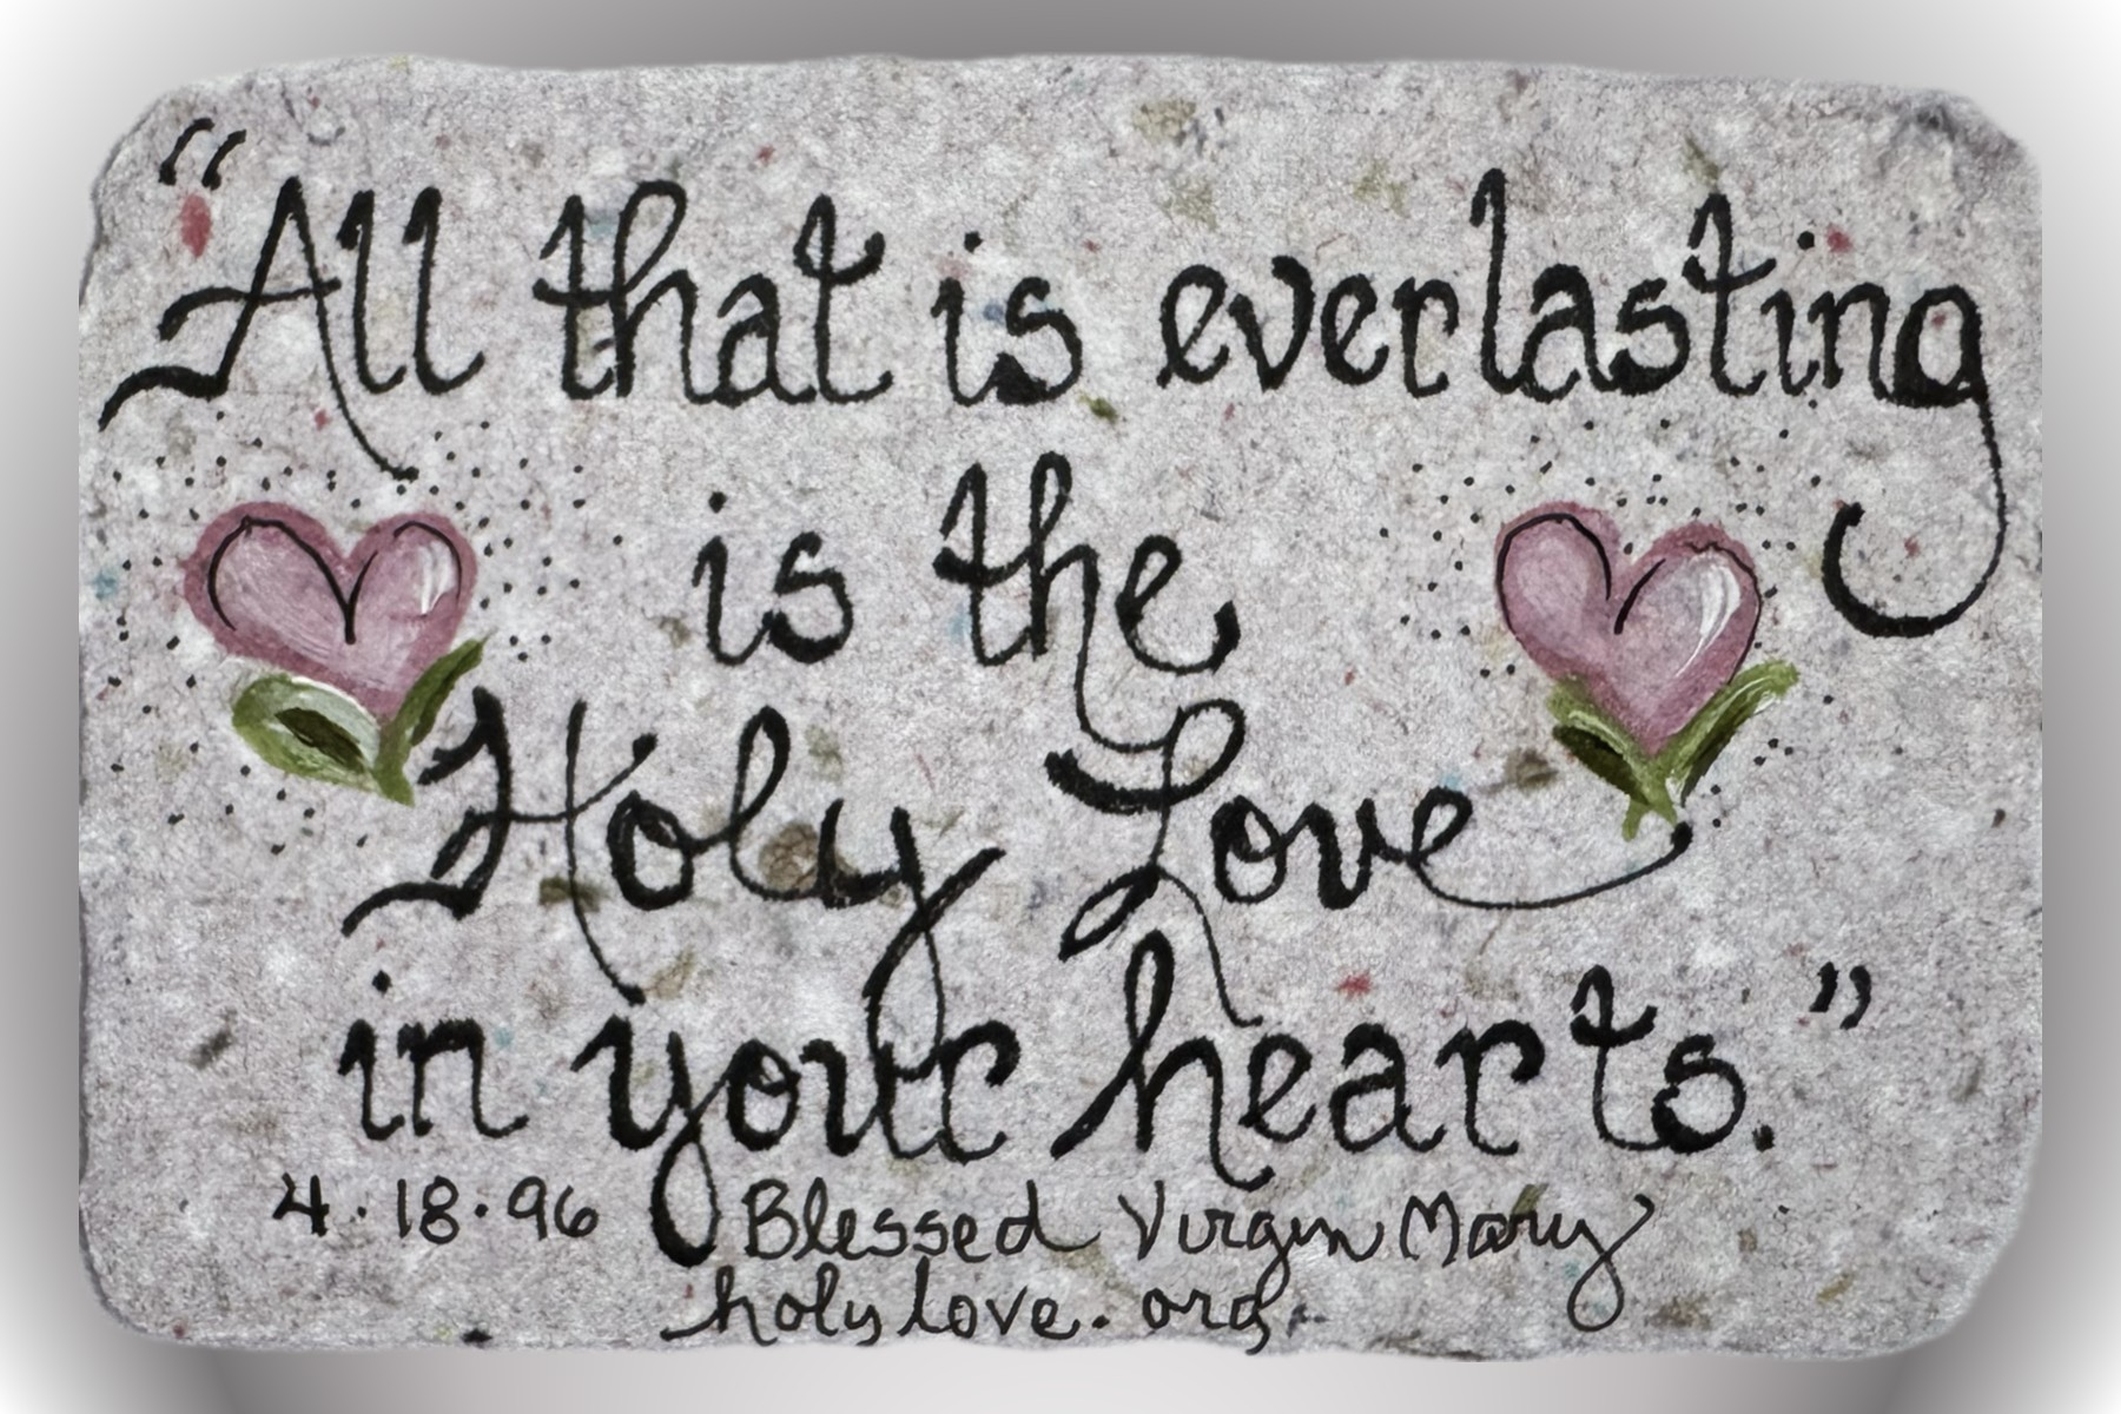 “All that is everlasting
is the
Holy Love
in your hearts.”
4.18.96 Blessed Virgin Mary
holylove.org